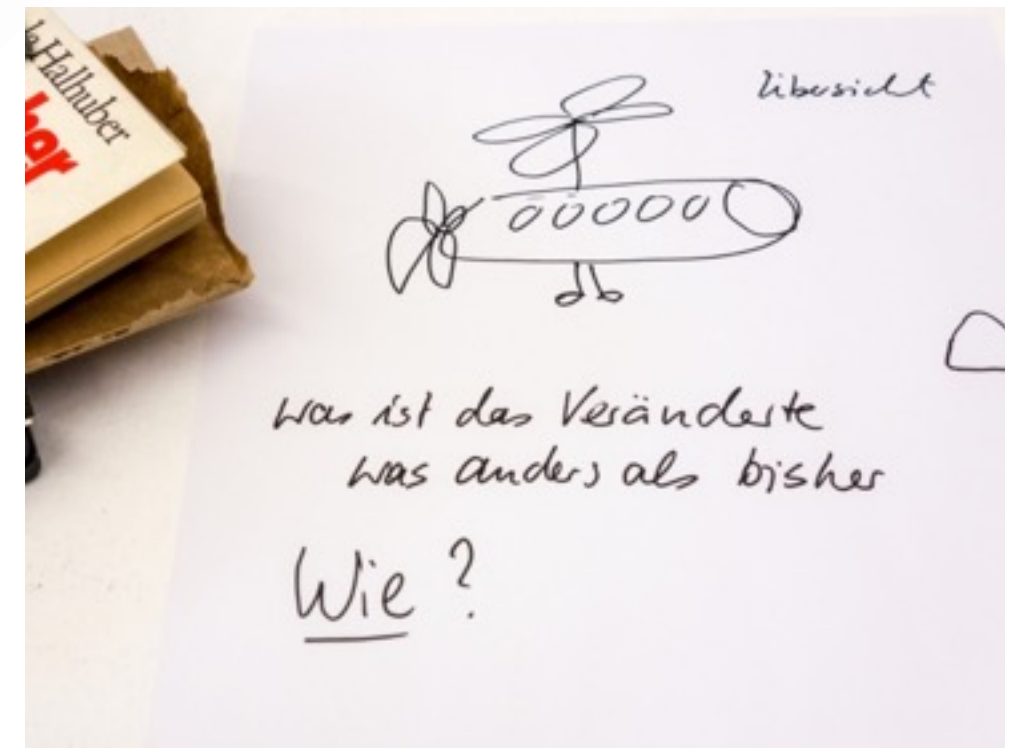 Halhuber
her
Übersicht
was ist das Veränderte
was anders als bisher
Wie ?